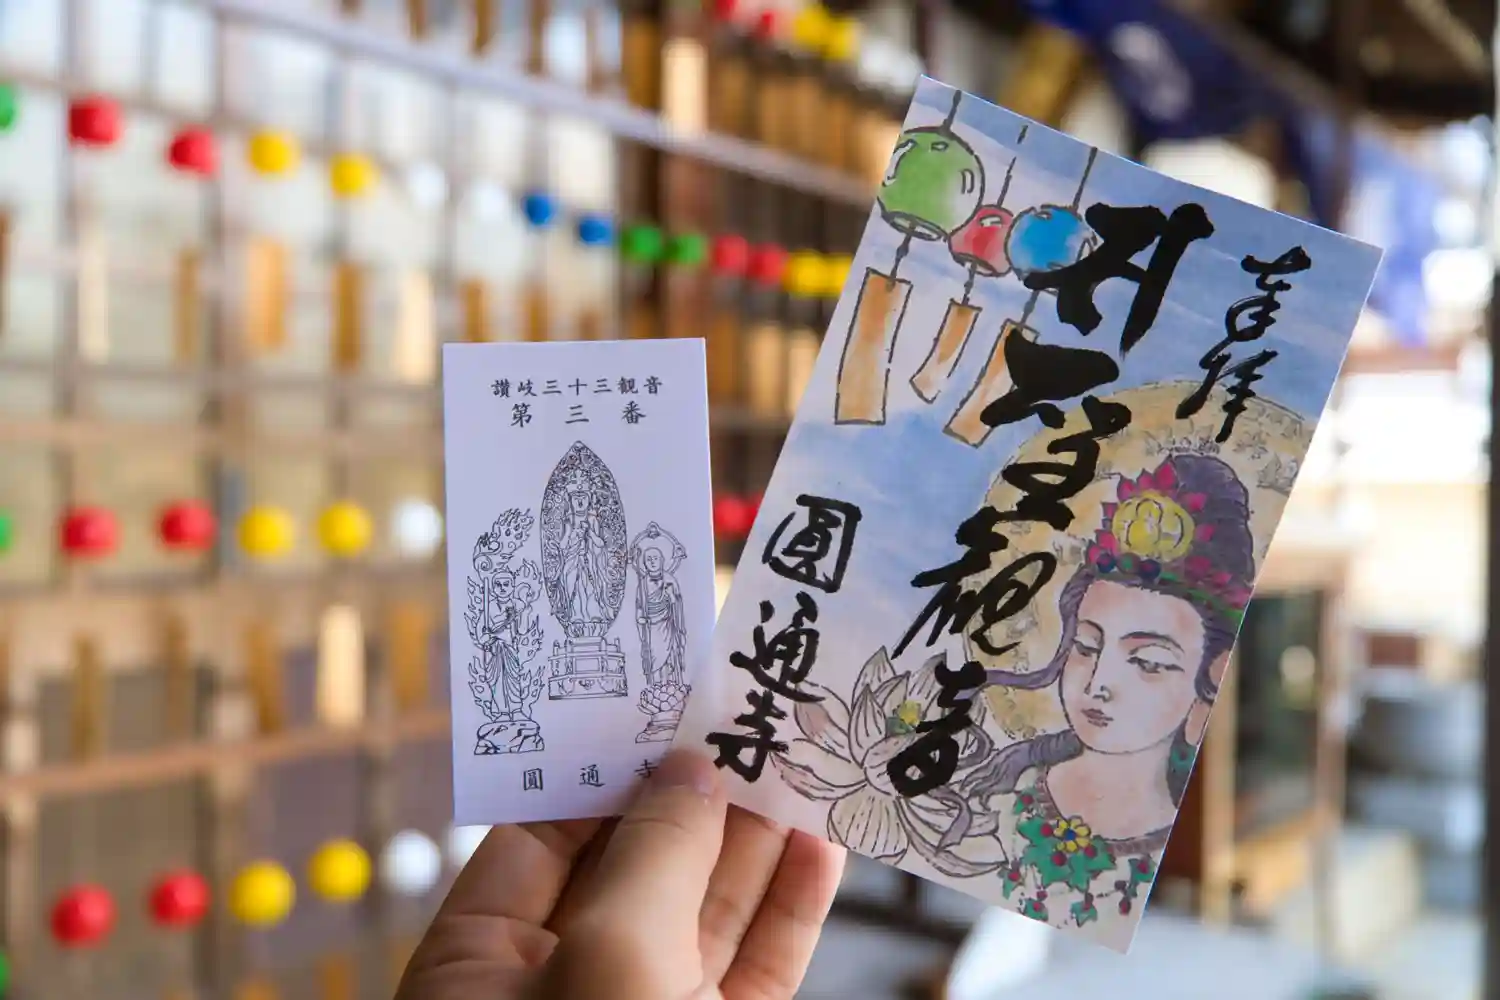 讃岐三十三観音
第三番
圓通寺
奉拝
聖観音
圓通寺